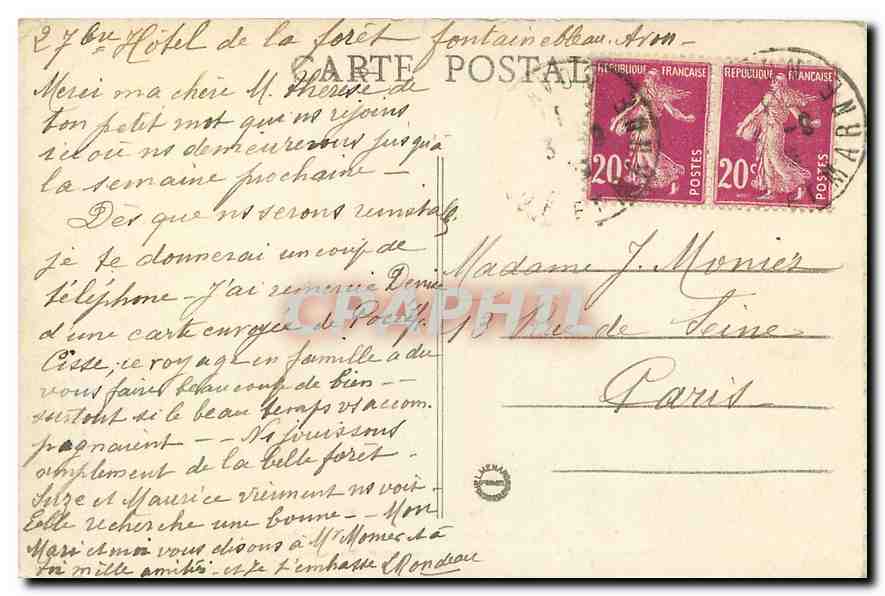 27 bre Hôtel de la forêt fontainebleau Avon
CARTE POSTALE
Merci ma chère M. Thérèse de
ton petit mot qui ns rejoins
ici où ns demeurerons jusqu'à
la semaine prochaine -
Dès que ns serons reinstallés
je te donnerai un coup de
téléphone - J'ai remercié Denise
d'une carte envoyée de
Cisse, ce voyage en famille a du
vous faire beaucoup de bien - -
surtout si le beau temps vs accom.
pagnaient - - Ns jouissons
amplement de la belle forêt -
Suze et Maurice viennent ns voir -
Elle recherche une bonne - - Mon
Mari et moi vous disons à Mr Monier et à
toi mille amitiés - et je t'embrasse LRondeau
RÉPUBLIQUE FRANÇAISE
20c POSTES
RÉPUBLIQUE FRANÇAISE
20c POSTES
Madame J. Monier
13 Rue de Seine
Paris
CRAPHIL